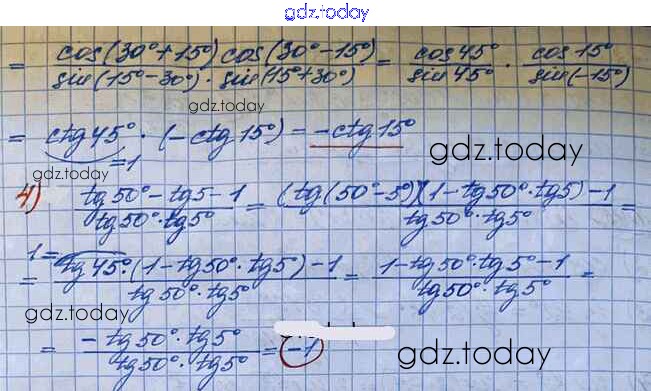 gdz.today
= cos(30°+15°) cos(30°-15°) / sin(15°-30°)·sin(15°+30°) = cos45° / sin45° · cos15° / sin(-15°)
gdz.today
= ctg45° · (-ctg15°) = -ctg15°
=1
gdz.today
gdz.today
4) tg50°-tg5-1 / tg50°·tg5° = (tg(50°-5°)(1-tg50°·tg5)-1 / tg50°·tg5° =
1=
= tg45°·(1-tg50°·tg5)-1 / tg50°·tg5° = 1-tg50°·tg5°-1 / tg50°·tg5° =
gdz.today
= -tg50°·tg5° / tg50°·tg5° = -1
gdz.today